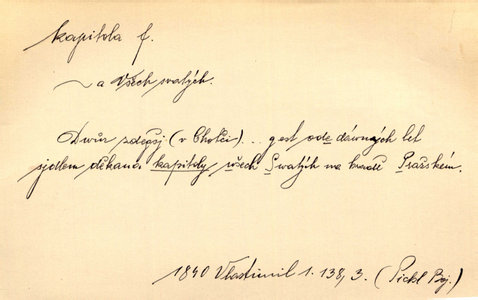 kapitola f.
~ a Všech svatých.
Dwůr zdegšj (v Chotči)... gest ode dáwných let
sjdlem děkana kapitoly wšech Swatých na hradě Pražském.
1840 Vlastimil 1. 138, 3. (Pickl Boj.)